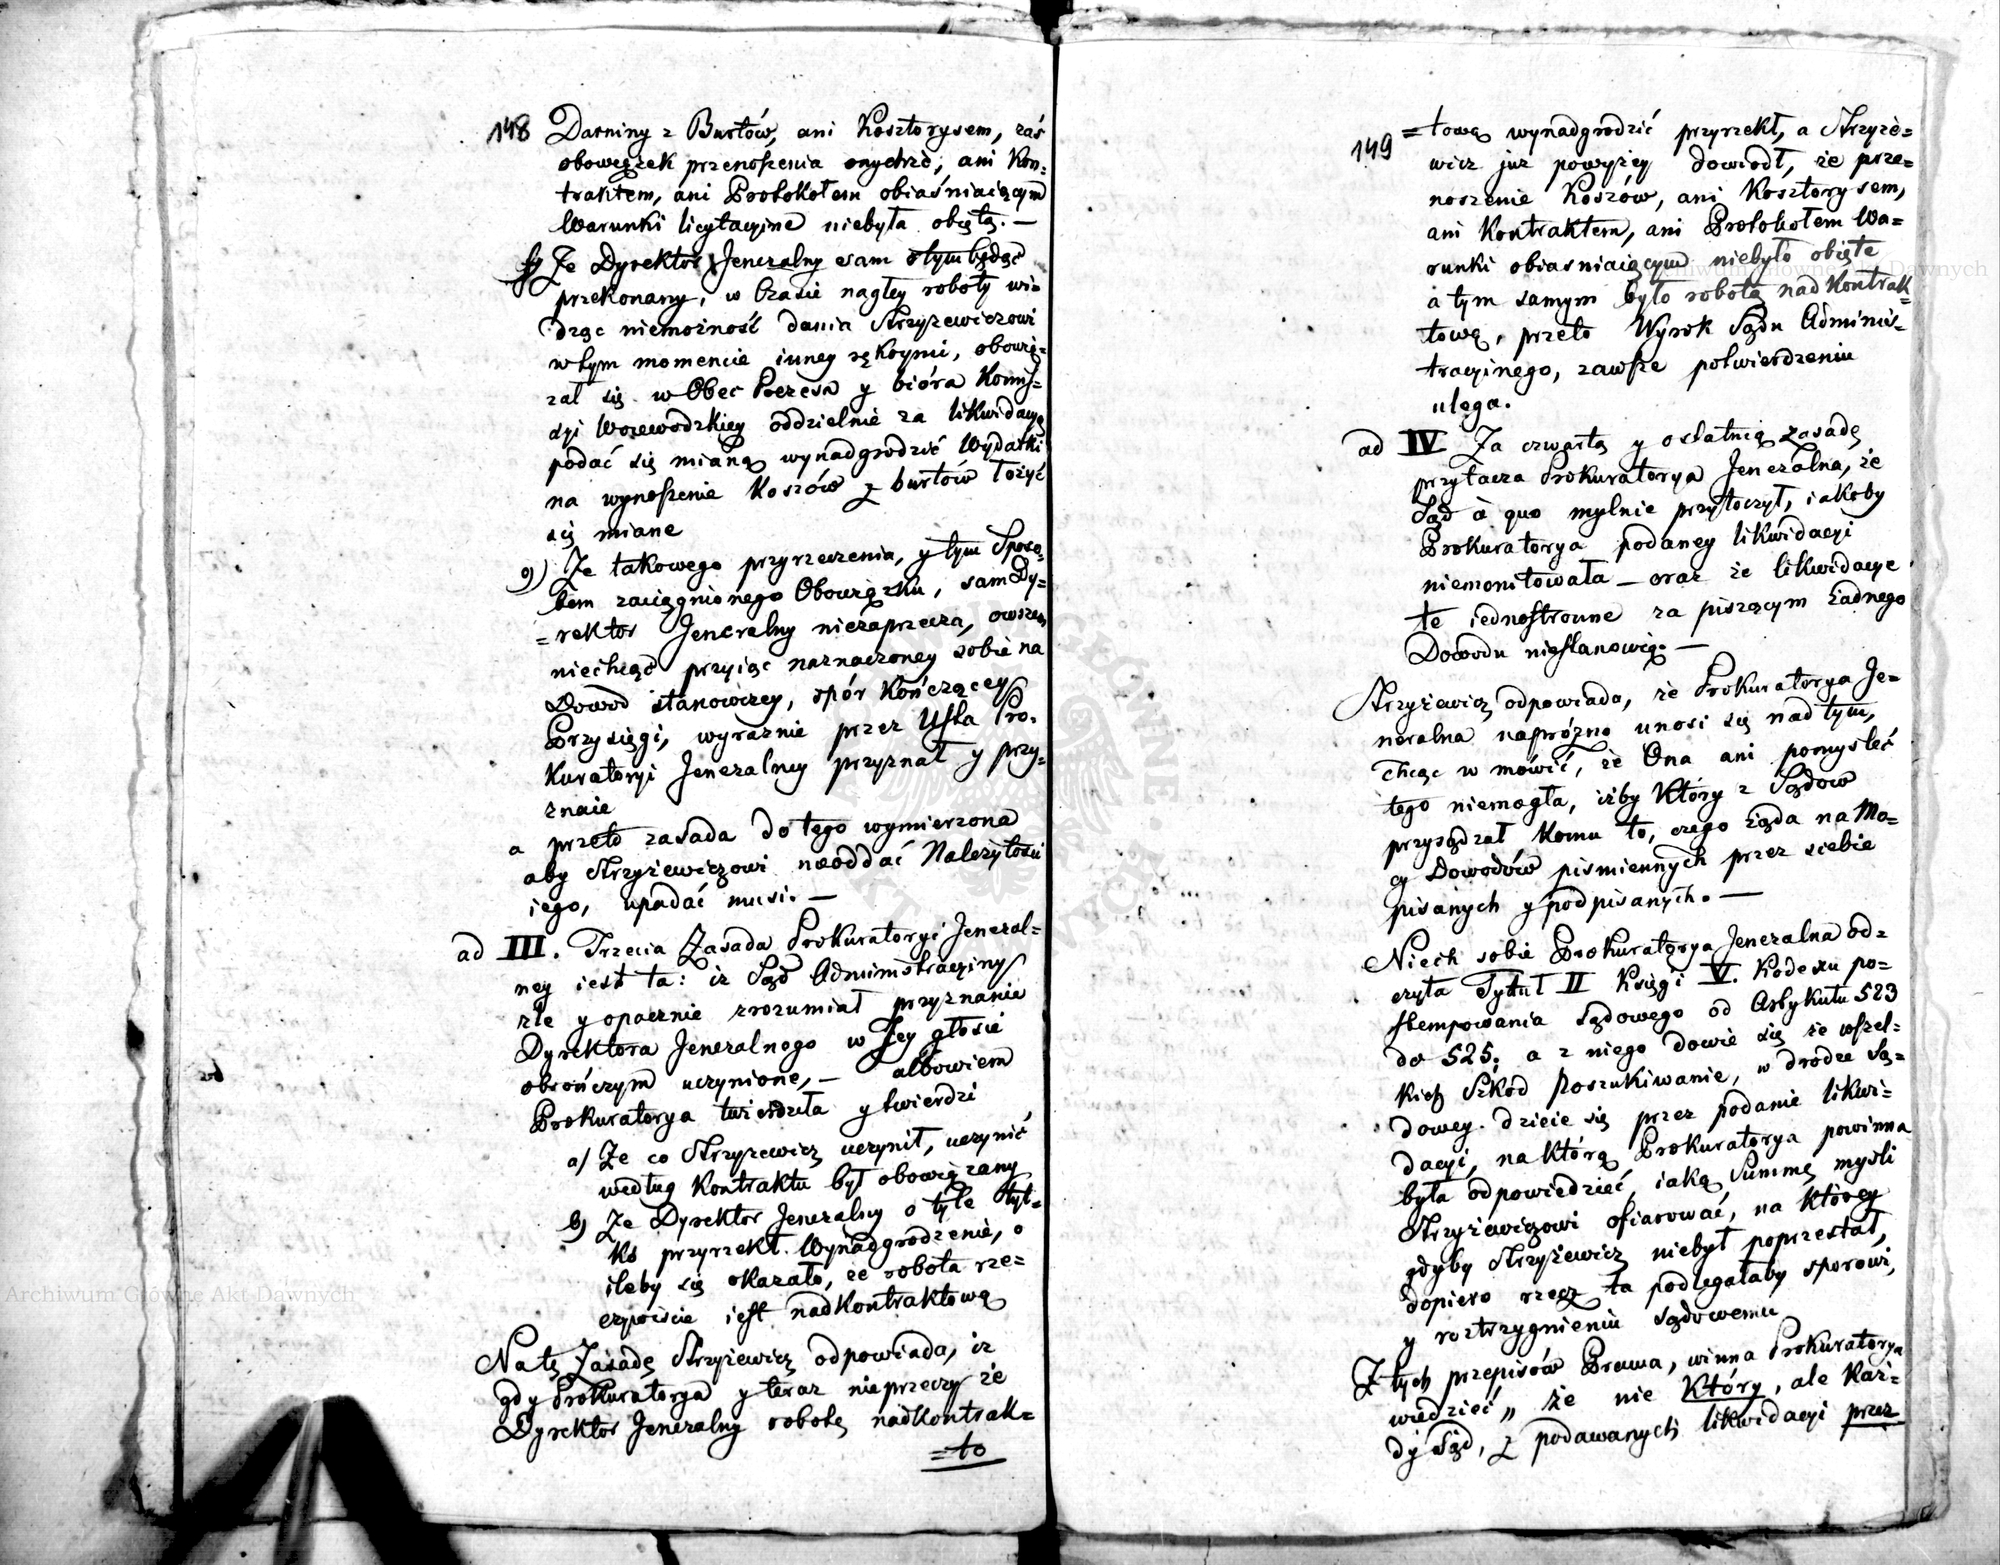 148 Darniny z Burtów, ani Kosztorysem, zaś
obowiązek przenoszenia onychże, ani Kon-
traktem, ani Protokołem obiaśniaiącym
Warunki licytacyine niebyła obięta. —
f) Że Dyrektor Jeneralny sam o tym będąc
przekonany, w Czasie nagłey roboty wi-
dząc niemożność dania Strzyżewiczowi
w tym momencie inney rękoymi, obowią-
zał się w Obec Prezesa y bióra Komis-
syi Woiewodzkiey oddzielnie za likwidacyą
podać się mianą wynadgrodzić Wydatki
na wynoszenie Koszów z burtów łożyć
się miane
g) Że takowego przyrzeczenia, y tym Sposo-
bem zaciągnionego Obowiązku, sam Dy-
=rektor Jeneralny niezaprzecza, owszem
niechcąc przyiąc naznaczoney sobie na
Dowod stanowczey, spór Kończącey
Przysięgi, wyraznie przez Usta Pro-
kuratoryi Jeneralney przyznał y przy-
znaie
a przeto zasada do tego wymierzona
aby Strzyżewiczowi nieoddać Należytości
iego, upadać musi. —
ad III. Trzecia Zasada Prokuratoryi Jeneral-
ney iest ta: iz Sąd Administracyiny
zle y opacznie zrozumiał przyznanie
Dyrektora Jeneralnego w Jey głosie
obrończym uczynione, — albowiem
Prokuratorya twierdziła y twierdzi
a) Że co Strzyżewicz uczynił, uczynić
według Kontraktu był obowiązany
b) Że Dyrektor Jeneralny o tyle tyl-
ko przyrzekł Wynadgrodzenie, o
ileby się okazało, że robota rze-
czywiście iest nadkontraktową
Na tę Zasadę Strzyżewicz odpowiada, iz
gdy Prokuratorya y teraz nieprzeczy że
Dyrektor Jeneralny robotę nadkontrak=
=to
149 =tową wynadgrodzić przyrzekł, a Strzyże=
wicz już powyżey dowiodł, że prze=
noszenie Koszów, ani Kosztorysem,
ani Kontraktem, ani Protokołem Wa=
runki obiasniaiącym niebyło obięte
a tym samym było robotą nad Kontrak-
tową, przeto Wyrok Sądu Adminis-
tracyinego, zawsze potwierdzeniu
ulega.
ad IV Za czwartą y ostatnią zasadę
przytacza Prokuratorya Jeneralna, że
Sąd à quo mylnie przytoczył, iakoby
Prokuratorya podaney likwidacyi
niemonitowała — oraz że likwidacye
te iednostronne za piszącym żadnego
Dowodu niestanowią. —
Strzyżewicz odpowiada, że Prokuratorya Je-
neralna napróżno unosi się nad tym,
chcąc w mówić, że Ona ani pomysleć
tego niemogła, iżby Który z Sądow
przysądzał Komu to, czego żąda na Mo-
cy Dowodów pismiennych przez siebie
pisanych y podpisanych. —
Niech sobie Prokuratorya Jeneralna od-
czyta Tytuł II Księgi V. Kodexu po-
stempowania Sądowego od Artykułu 523
do 525. a z niego dowie się że wszel-
kich Szkód poszukiwanie, w drodze Są-
dowey dzieie się przez podanie likwi-
dacyi, na którą Prokuratorya powinna
była odpowiedzieć, iaką Summę mysli
Strzyżewiczowi ofiarować, na którey
gdyby Strzyżewicz niebył poprzestał,
dopiero rzecz ta podlegałaby sporowi,
y roztrzygnieniu sądowemu
Z tych przepisów Prawa, winna Prokuratorya
wiedzieć „ że nie Który, ale Każ-
dy Sąd, z podawanych likwidacyi przez
Archiwum Główne Akt Dawnych
Archiwum Główne Akt Dawnych